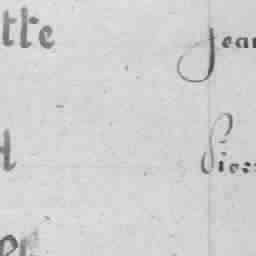 tte Jean
t Pierr
er